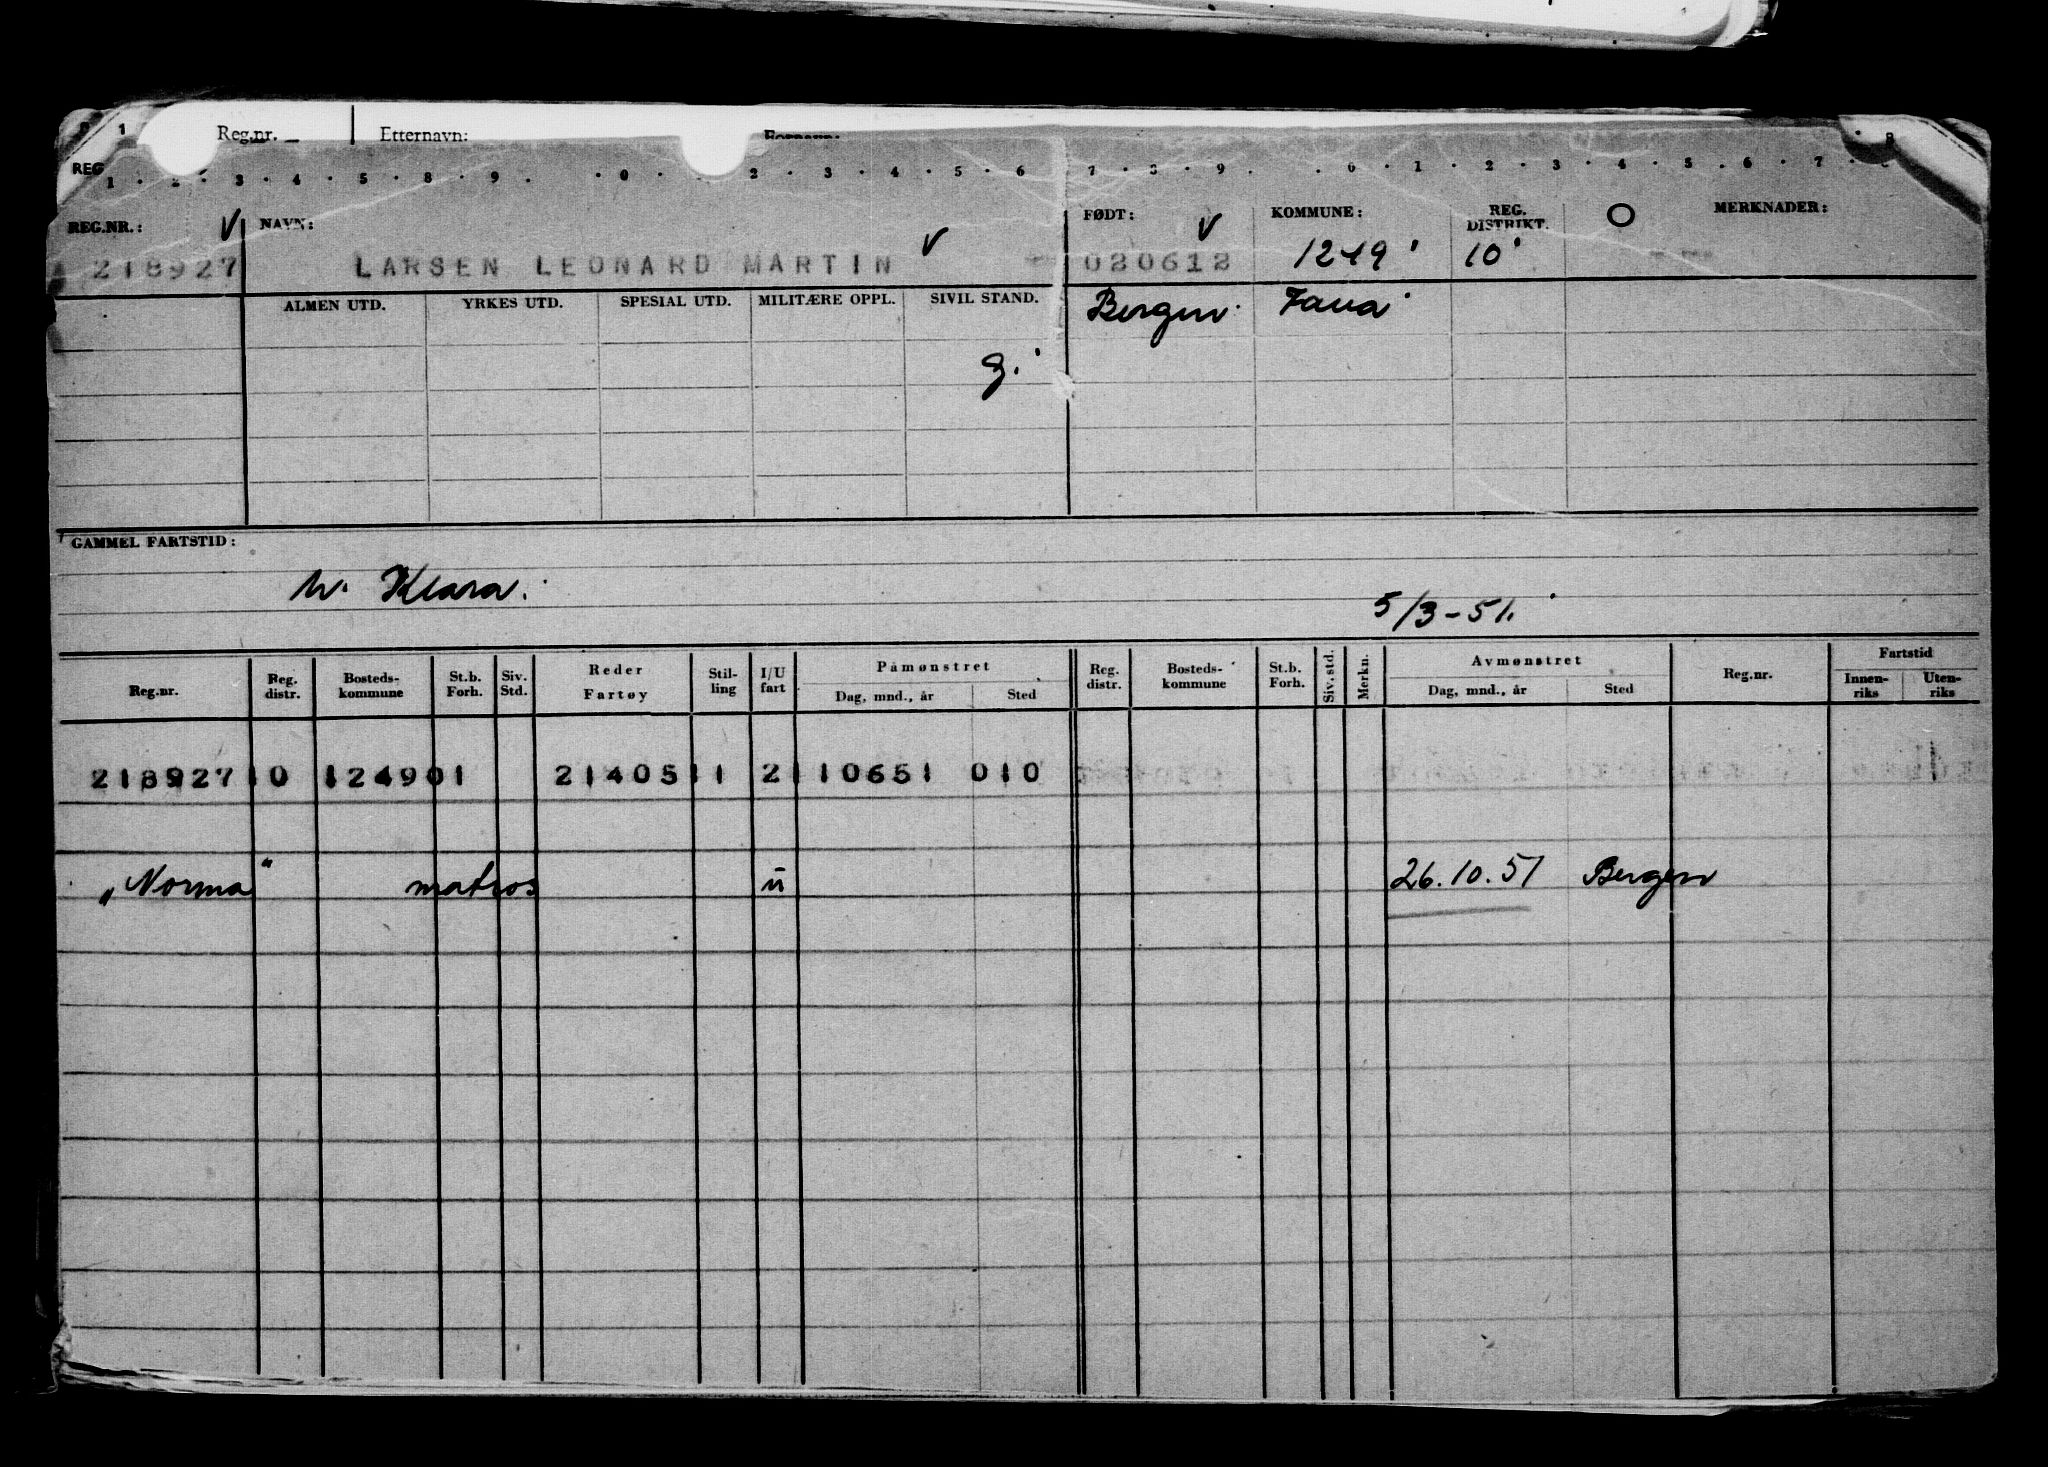 Reg.nr. Etternavn:
REG.NR.: V NAVN: V FØDT: V KOMMUNE: REG. DISTRIKT. O MERKNADER:
218927 LARSEN LEONARD MARTIN 020612 1249 10
ALMEN UTD. YRKES UTD. SPESIAL UTD. MILITÆRE OPPL. SIVIL STAND. Bergen Fana
g.
GAMMEL FARTSTID:
M. Klara.
5/3-51.
Reg.nr. Reg. distr. Bosteds-kommune St.b. Forh. Siv. Std. Reder Fartøy Stil-ling I/U fart Påmønstret Dag, mnd., år Sted Reg. distr. Bosteds-kommune St.b. Forh. Siv. std. Merkn. Avmønstret Dag, mnd., år Sted Reg.nr. Fartstid Innen-riks Uten-riks
218927 10 124901 21405 11 2 110651 010
„Norma" matros u 26.10.51 Bergen